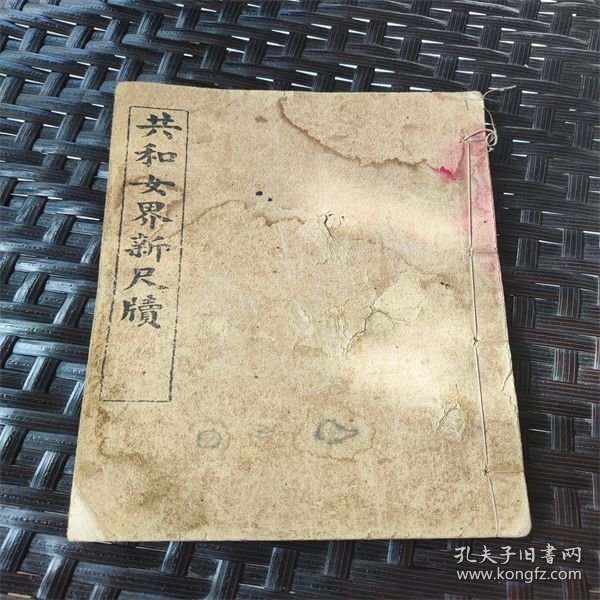 共和女界新尺牘
孔夫子旧書网
www.kongfz.com